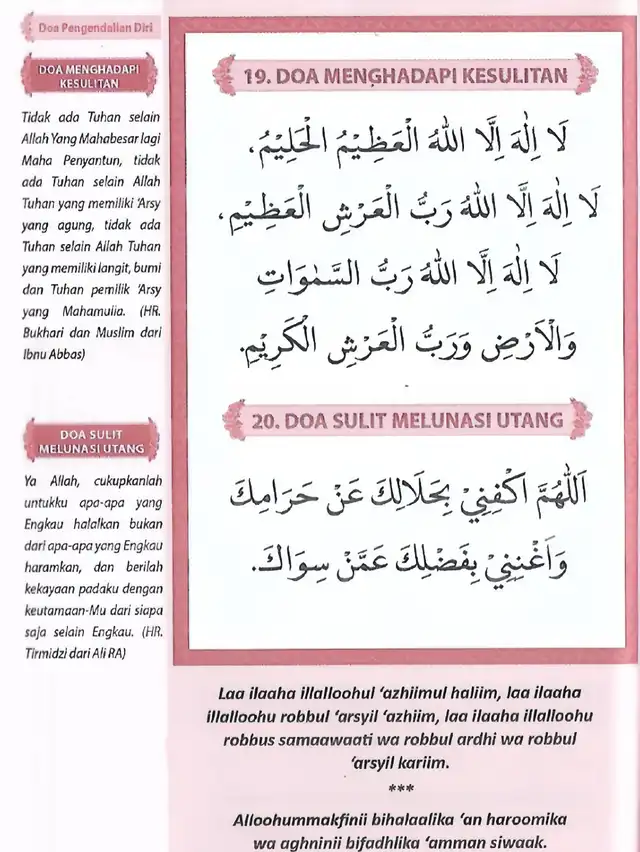 Doa Pengendalian Diri
DOA MENGHADAPI
KESULITAN
Tidak ada Tuhan selain
Allah Yang Mahabesar lagi
Maha Penyantun, tidak
ada Tuhan selain Allah
Tuhan yang memiliki 'Arsy
yang agung, tidak ada
Tuhan selain Allah Tuhan
yang memiliki langit, bumi
dan Tuhan pemilik 'Arsy
yang Mahamulia. (HR.
Bukhari dan Muslim dari
Ibnu Abbas)
DOA SULIT
MELUNASI UTANG
Ya Allah, cukupkanlah
untukku apa-apa yang
Engkau halalkan bukan
dari apa-apa yang Engkau
haramkan, dan berilah
kekayaan padaku dengan
keutamaan-Mu dari siapa
saja selain Engkau. (HR.
Tirmidzi dari Ali RA)
19. DOA MENGHADAPI KESULITAN
لَا اِلٰهَ اِلَّا اللهُ الْعَظِيْمُ الْحَلِيْمُ،
لَا اِلٰهَ اِلَّا اللهُ رَبُّ الْعَرْشِ الْعَظِيْمِ،
لَا اِلٰهَ اِلَّا اللهُ رَبُّ السَّمٰوَاتِ
وَالْاَرْضِ وَرَبُّ الْعَرْشِ الْكَرِيْمِ.
20. DOA SULIT MELUNASI UTANG
اَللّٰهُمَّ اكْفِنِيْ بِحَلَالِكَ عَنْ حَرَامِكَ
وَاَغْنِنِيْ بِفَضْلِكَ عَمَّنْ سِوَاكَ.
Laa ilaaha illalloohul 'azhiimul haliim, laa ilaaha
illalloohu robbul 'arsyil 'azhiim, laa ilaaha illalloohu
robbus samaawaati wa robbul ardhi wa robbul
'arsyil kariim.
***
Alloohummakfinii bihalaalika 'an haroomika
wa aghninii bifadhlika 'amman siwaak.